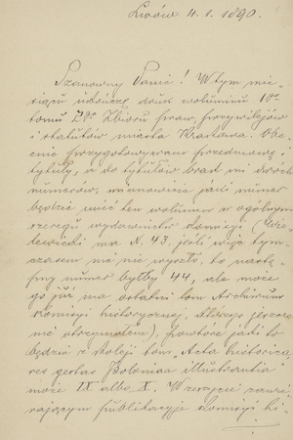 Lwów 4. 1. 1890.
Szanowny Panie! W tym mie-
siącu ukończę druk woluminu 10
tomu 2go Zbioru praw, przywilejów
i statutów miasta Krakowa. Obe-
cnie przygotowywam przedmowę i
tytuły, a do tytułów brak mi dwóch
numerów, mianowicie jaki numer
będzie mieć ten wolumin w ogólnym
szeregu wydawnictw Komisyi.
ma N. 43, jeśli więc tym-
czasem nic nie wyszło, to nastę-
pny numer byłby 44, ale może
go już ma ostatni tom Archiwum
Komisyi historycznej, (którego jeszcze
nie otrzymałem), powtóre jaki to
będzie z kolei tom "Acta historica
res gestas Poloniae illustrantia
może IX albo X. W zeszycie zawie-
rającym publikacyje Komisyi hi-